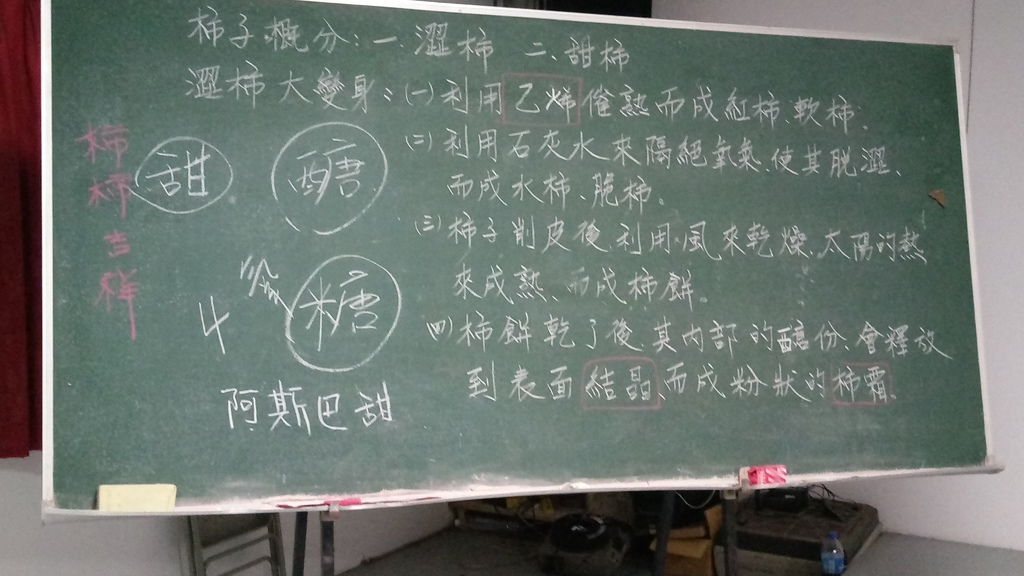 柿子概分：一.澀柿 二、甜柿
澀柿大變身：(一)利用乙烯催熟而成紅柿軟柿.
(二)利用石灰水來隔絕氧氣.使其脫澀、
而成水柿、脆柿。
(三)柿子削皮後.利用風來乾燥.太陽的熱
來成熟、而成柿餅。
(四)柿餅乾了後.其內部的醣份、會釋放
到表面結晶而成粉狀的柿霜.
柿柿吉祥
甜
醣
糖
阿斯巴甜